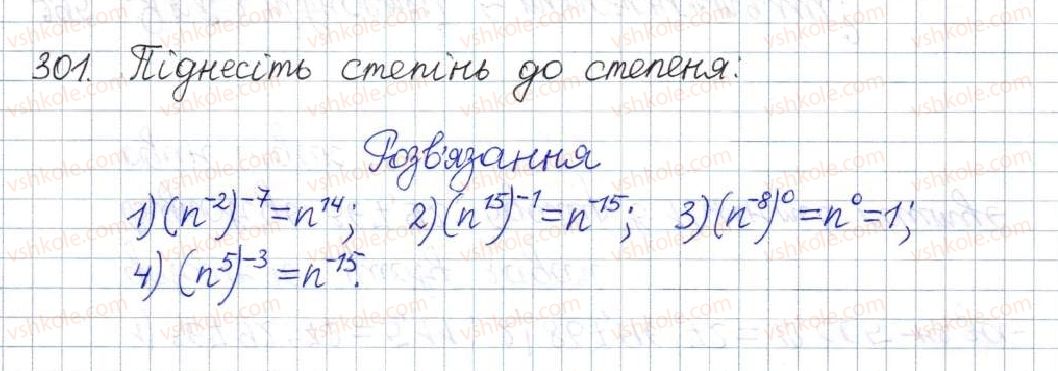 301. Піднесіть степінь до степеня:
Розв'язання
1) (n⁻²)⁻⁷ = n¹⁴; 2) (n¹⁵)⁻¹ = n⁻¹⁵; 3) (n⁻⁸)⁰ = n⁰ = 1;
4) (n⁵)⁻³ = n⁻¹⁵.